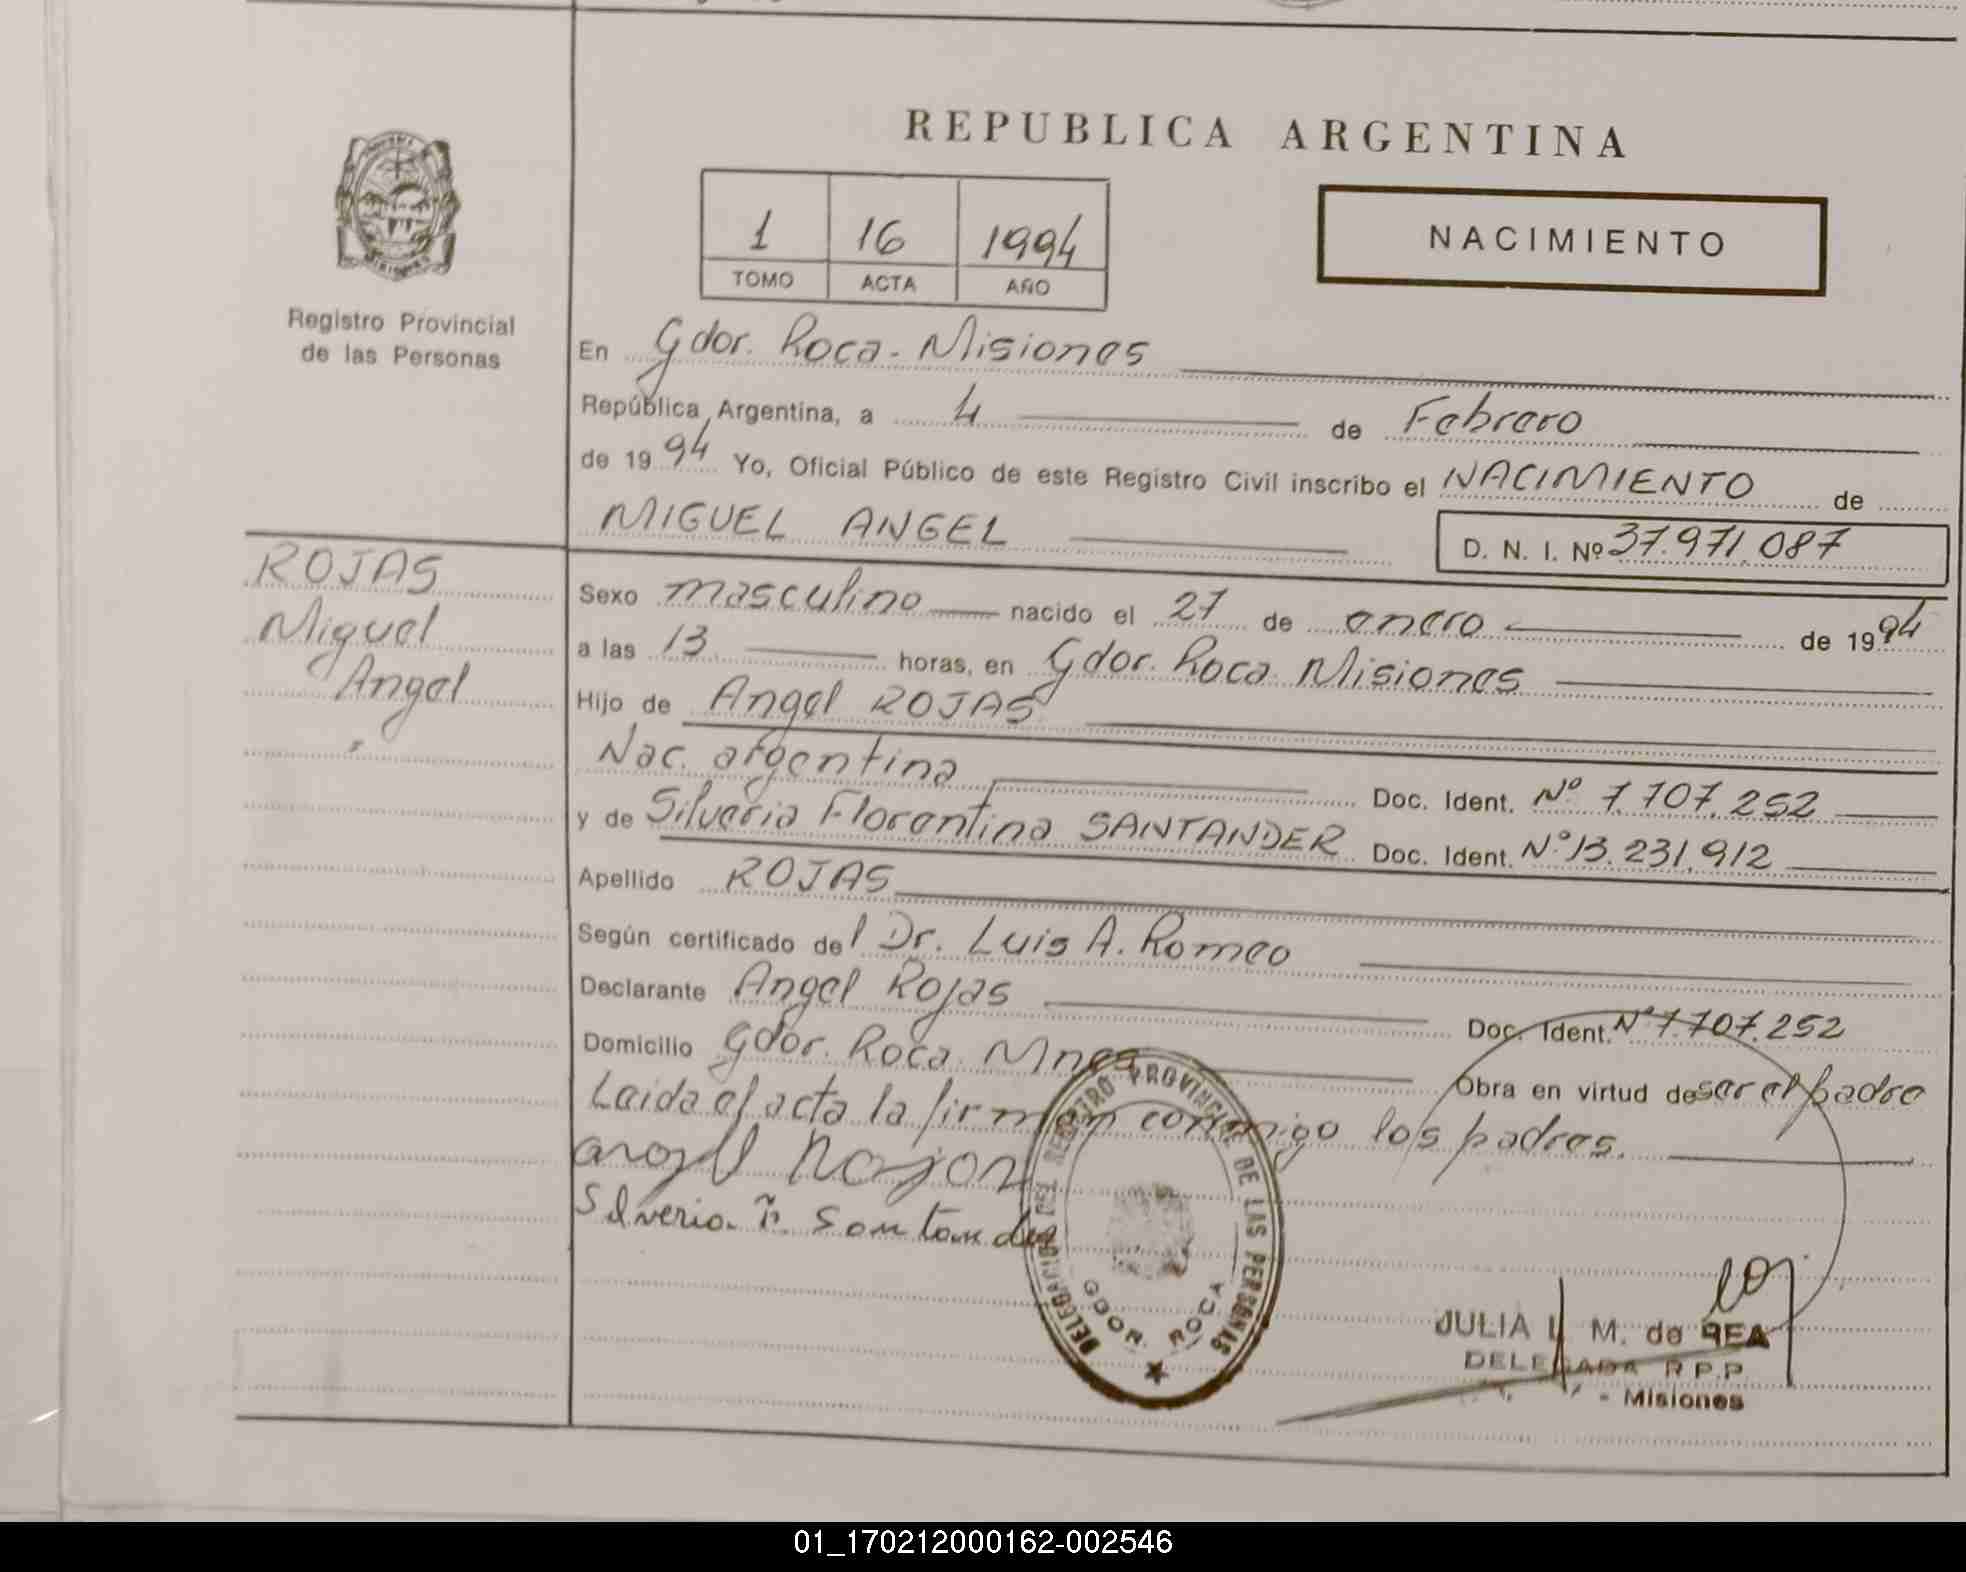 REPUBLICA ARGENTINA
1 16 1994
TOMO ACTA AÑO
NACIMIENTO
Registro Provincial
de las Personas
En Gdor. Roca - Misiones
República Argentina, a 4 de Febrero
de 1994 Yo, Oficial Público de este Registro Civil inscribo el NACIMIENTO de
MIGUEL ANGEL D. N. I. Nº 37.971.087
ROJAS
Miguel
Angel
Sexo masculino nacido el 27 de enero de 1994
a las 13 horas, en Gdor. Roca. Misiones
Hijo de Angel ROJAS
Nac. argentina Doc. Ident. Nº 7.707.252
y de Silveria Florentina SANTANDER Doc. Ident. Nº 13.231.912
Apellido ROJAS
Según certificado del Dr. Luis A. Romeo
Declarante Angel Rojas Doc. Ident. Nº 7.707.252
Domicilio Gdor. Roca. Mnes Obra en virtud de ser el padre
Leida el acta la firman conmigo los padres.
Silveria F. Santander
DELEGACION DEL REGISTRO PROVINCIAL DE LAS PERSONAS
GDOR. ROCA
JULIA I. M. de REA
DELEGADA R.P.P.
- Misiones
01_170212000162-002546